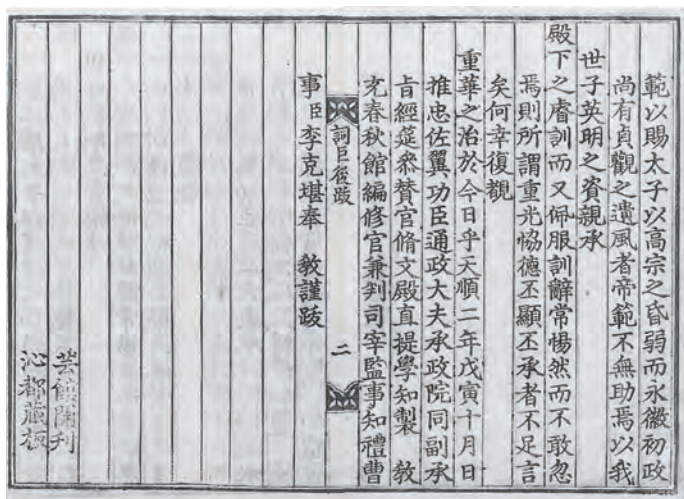 範以賜太子以高宗之昏弱而永徽初政
尚有貞觀之遺風者帝範不無助焉以我
世子英明之資親承
殿下之睿訓而又佩服訓辭常惕然而不敢忽
焉則所謂重光恊德丕顯丕承者不足言
矣何幸復覩
重華之治於今日乎天順二年戊寅十月日
推忠佐翼功臣通政大夫承政院同副承
旨經筵叅贊官脩文殿直提學知製 敎
充春秋館編修官兼判司宰監事知禮曹
訶臣後跋 二
事臣李克堪奉 敎謹跋
芸館開刊
沁都藏板